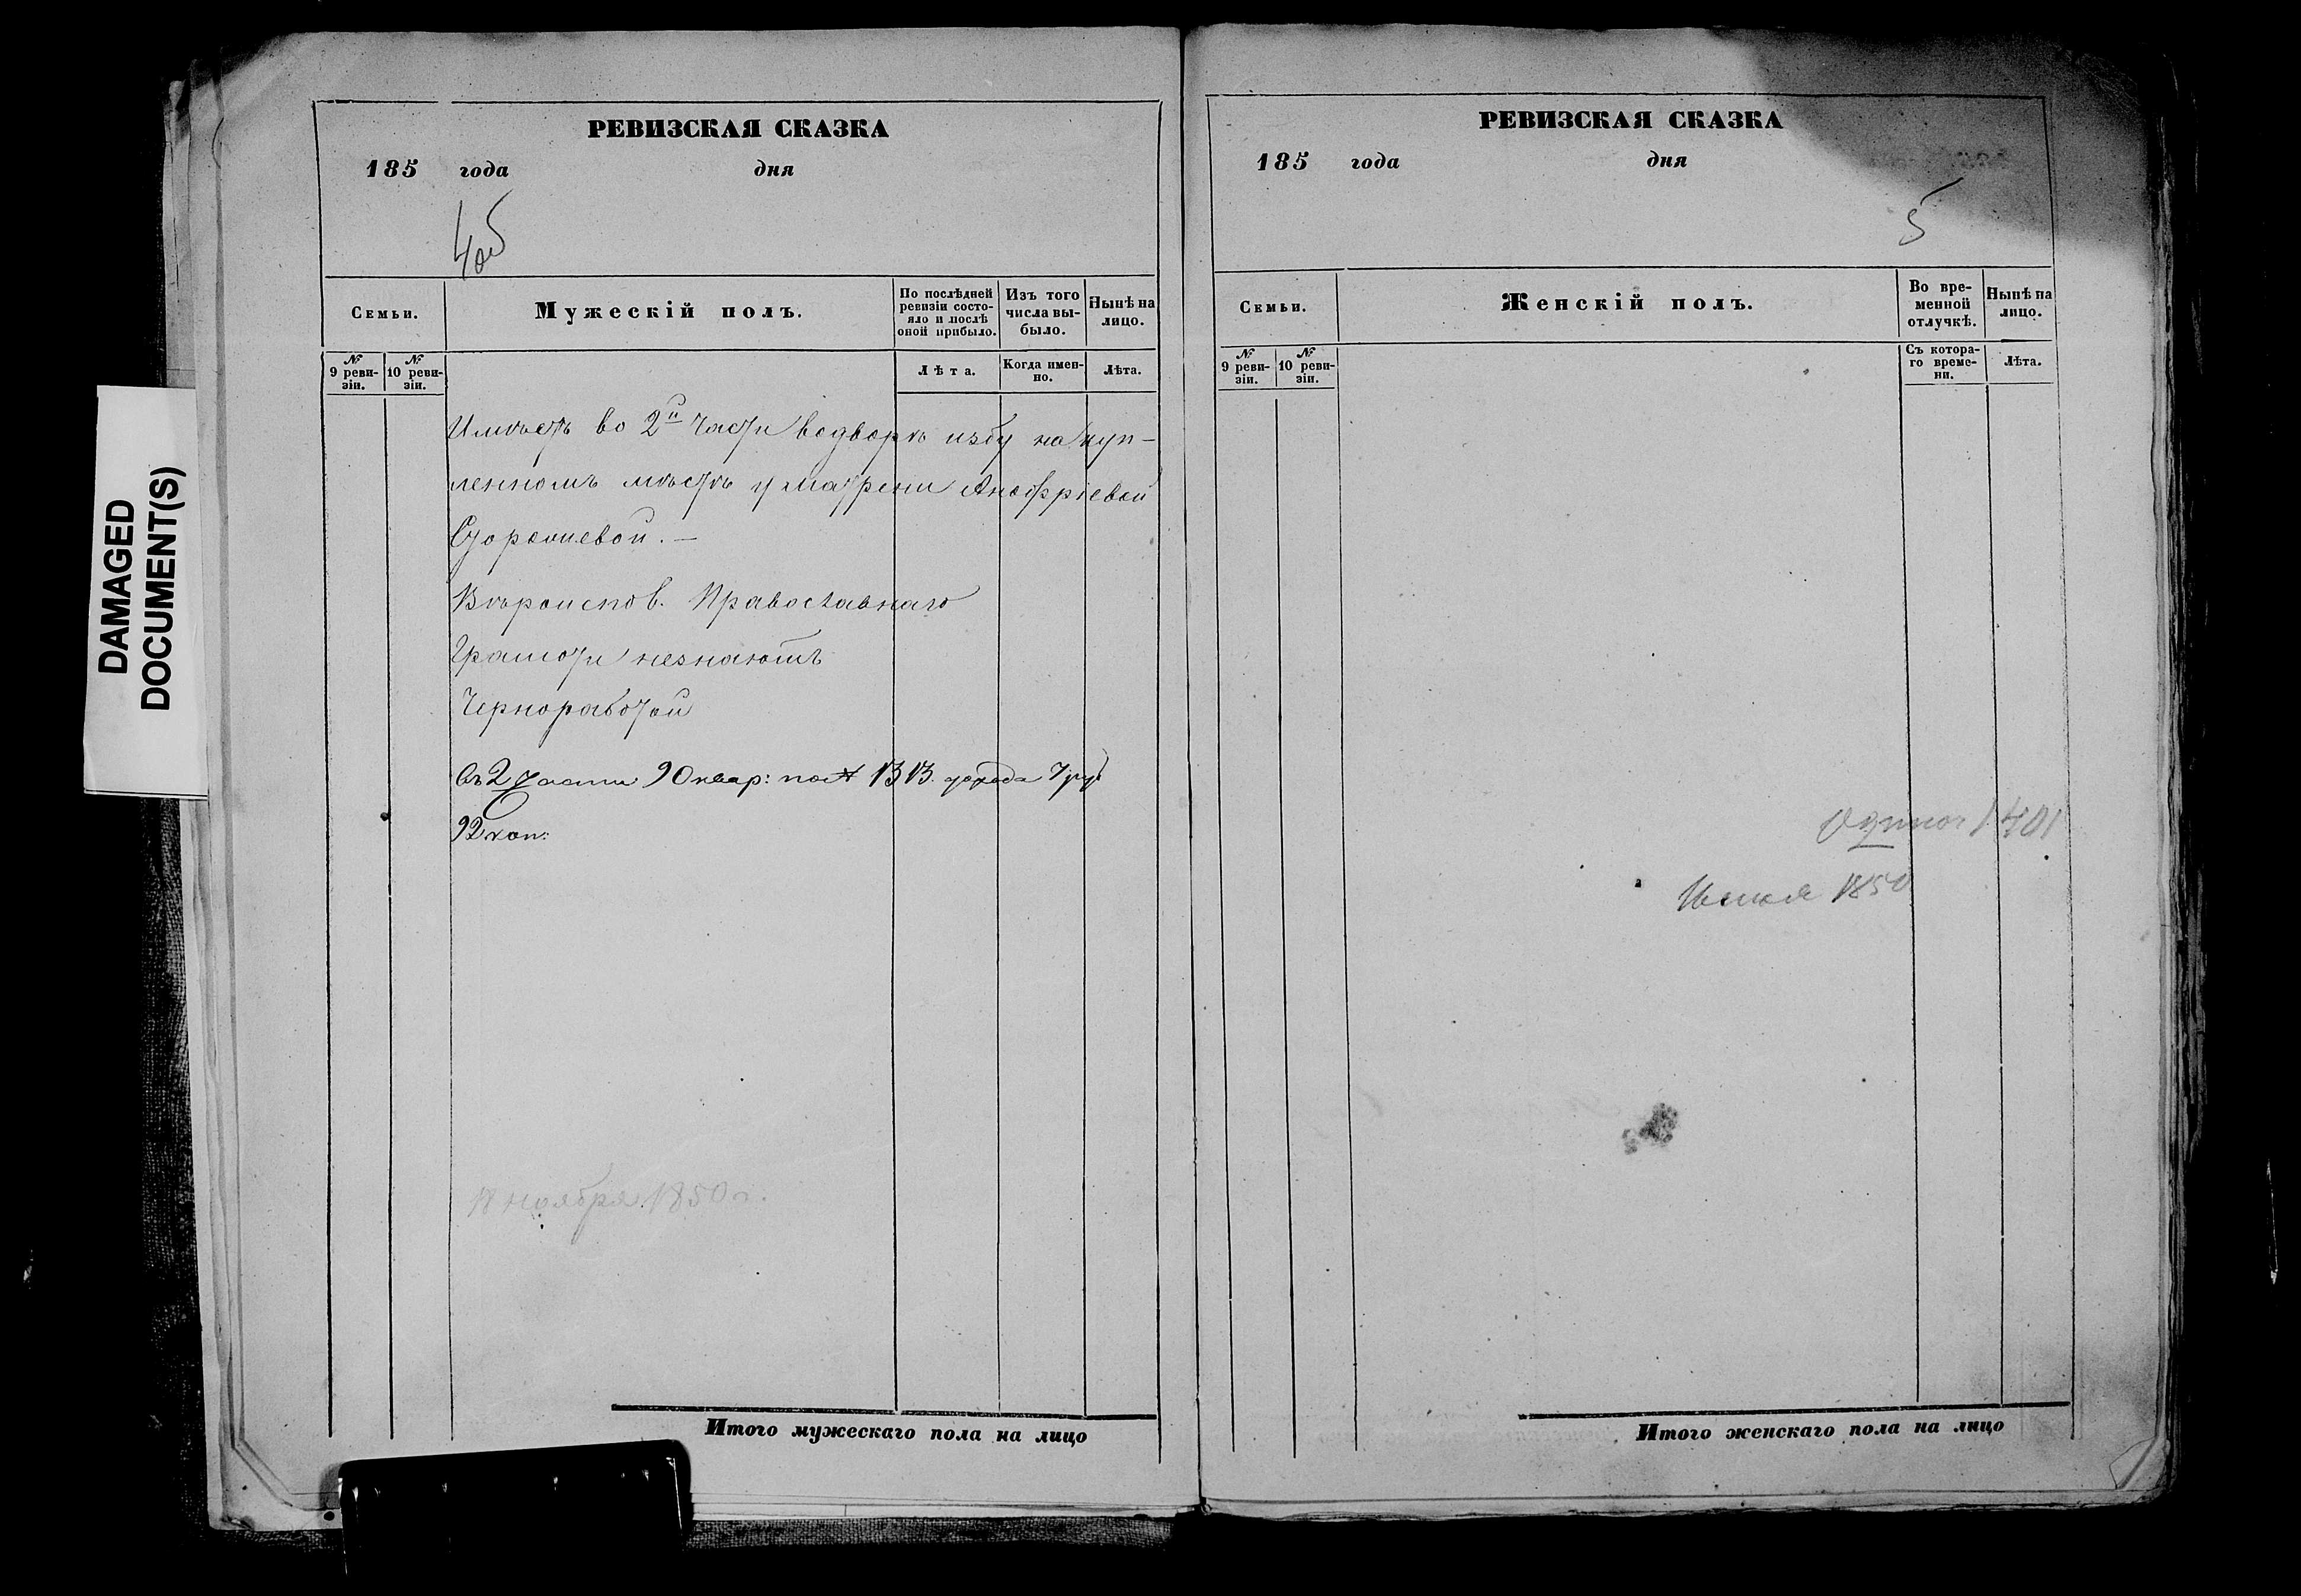 DAMAGED
DOCUMENT(S)
РЕВИЗСКАЯ СКАЗКА
185 года дня
4об
Семьи.
Мужескій полъ.
По послѣдней
ревизіи состо-
яло и послѣ
оной прибыло.
Изъ того
числа вы-
было.
Нынѣ на
лицо.
№
9 реви-
зіи.
№
10 реви-
зіи.
Лѣта.
Когда имен-
но.
Лѣта.
Имѣетъ во 2й части водворѣ избу на куп-
ленномъ мѣстѣ у Матрени Анофріевой
Вѣроиспов. Православнаго
Грамоти незнаютъ
Чернороботой
въ 2 части 90 квар: под № 1313. дохода 7 руб
92 коп:
18 ноября 1850 г.
Итого мужескаго пола на лицо
РЕВИЗСКАЯ СКАЗКА
185 года дня
5
Семьи.
Женскій полъ.
Во вре-
менной
отлучкѣ.
Нынѣ на
лицо.
№
9 реви-
зіи.
№
10 реви-
зіи.
Съ котора-
го време-
ни.
Лѣта.
1850
Итого женскаго пола на лицо